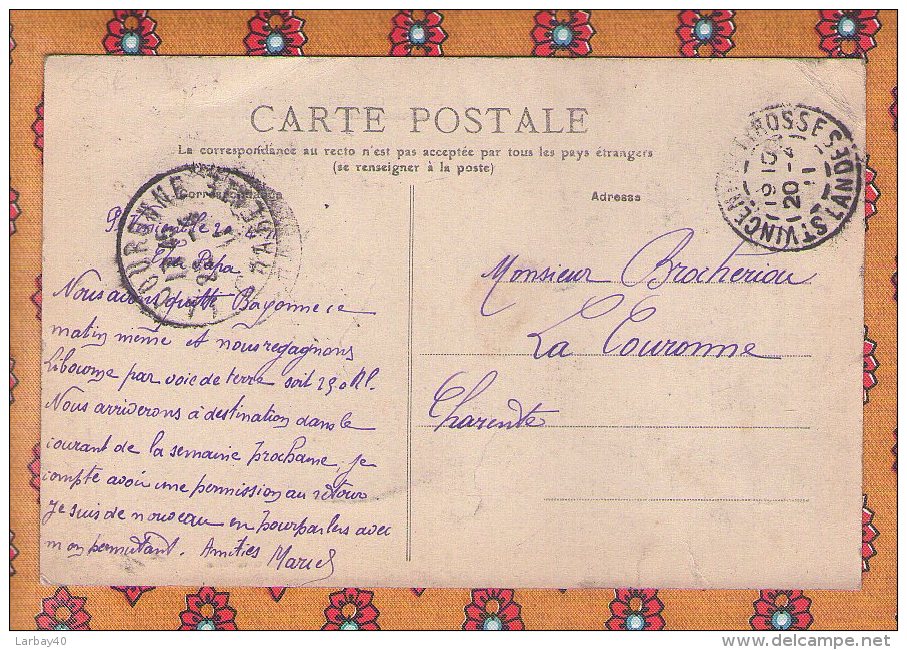 CARTE POSTALE
La correspondance au recto n'est pas acceptée par tous les pays étrangers
(se renseigner à la poste)
Corres
Adresse
Papa
Nous avons quitté Bayonne ce
matin même et nous regagnons
Libourne par voie de terre soit 250 Kl.
Nous arriverons à destination dans le
courant de la semaine prochaine, je
compte avoir une permission au retour
Je suis de nouveau en pourparlers avec
mon permutant. Amitiés Marcel
Monsieur Brocheriou
La Couronne
Charente
ST VINCENT ROSSE LANDES
19 15
20 - 4
11
LA COURONNE CHARENTE
Larbay40
www.delcampe.net